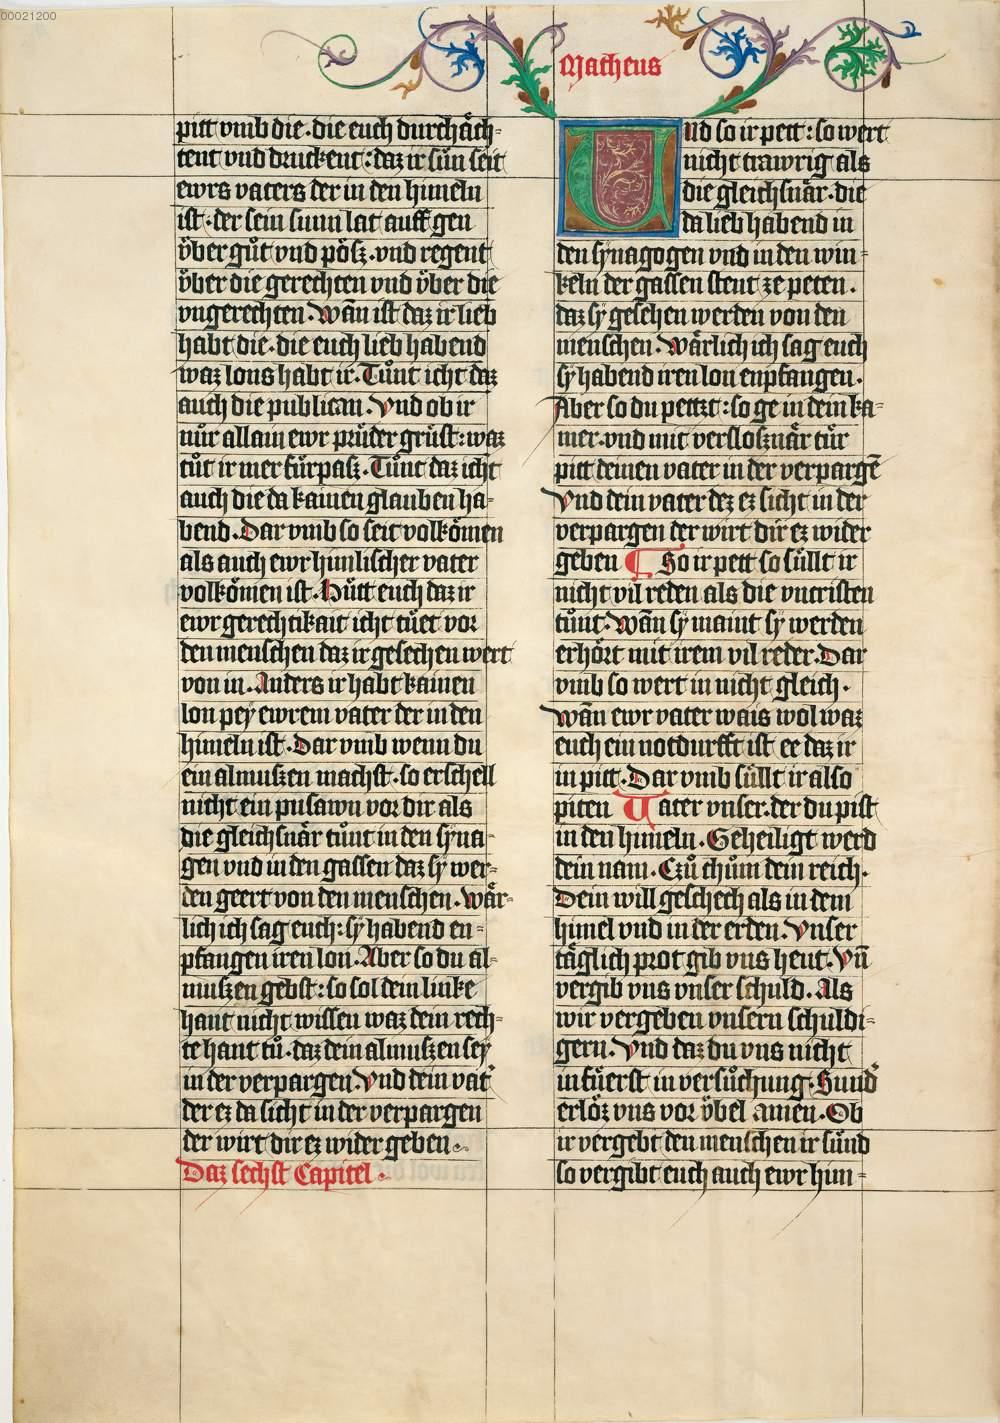 00021200
Matheus
pitt vmb die·die euch durchåch-
tent vnd druckent: daz ir sün seit
ewrs vaters der in den himeln
ist·der sein sunn lat auff gen
v̈ber gůt vnd pösz·vnd regent
v̈ber die gerechten vnd v̈ber die
vngerechten. Wān ist daz ir lieb
habt die·die euch lieb habend
waz lons habt ir. Tůnt icht daz
auch die publican. Vnd ob ir
nůr allain ewr průder grüst: waz
tůt ir mer fürpasz. Tůnt daz icht
auch die da kainen glauben ha-
bend. Dar vmb so seit volkömen
als auch ewr himlischer vater
volkömen ist. Hütt euch daz ir
ewr gerechtikait icht tůet vor
den menschen daz ir gesechen wert
von in. Anders ir habt kainen
lon pey ewrem vater der in den
himeln ist. Dar vmb wenn du
ein almuszen machst·so erschell
nicht ein pusawn vor dir als
die gleichsnår tůnt in den syna-
gen vnd in den gassen daz sy wer-
den geert von den menschen. Wår-
lich ich sag euch: sy habend en-
pfangen iren lon. Aber so du al-
muszen gebst: so sol dein linke
hant nicht wissen waz dein rech-
te hant tů·daz dein almuszen sey
in der verpargen. Vnd dein vat'
der ez da sicht in der verpargen
der wirt dir ez wider geben.
Daz sechst Capitel.
Und so ir pett: so wert
nicht trawrig als
die gleichsnår·die
da lieb habend in
den synagogen vnd in den win-
keln der gassen stent ze peten.
daz sy gesehen werden von den
menschen. Wårlich ich sag euch
sy habend iren lon enpfangen.
Aber so du pettzt: so ge in dein ka-
mer·vnd mit verslosznår tür
pitt deinen vater in der verpargē
Vnd dein vater dez ez sicht in der
verpargen der wirt dir ez wider
geben ¶ So ir pett so süllt ir
nicht vil reden als die vncristen
tůnt. Wān sy maint sy werden
erhört mit irem vil reder. Dar
vmb so wert in nicht gleich.
Wān ewr vater wais wol waz
euch ein notdurfft ist ee daz ir
in pitt. Dar vmb süllt ir also
piten Uater vnser·der du pist
in den himeln. Geheiligt werd
dein nam. Czů chům dein reich.
Dein will geschech als in dem
himel vnd in der erden. Vnser
täglich prot gib vns heut. Vn̄
vergib vns vnser schuld. Als
wir vergeben vnsern schuldi-
gern. Vnd daz du vns nicht
in fůerst in versůchung. Sund'
erlöz vns vor v̈bel amen. Ob
ir vergebt den menschen ir sünd
so vergibt euch auch ewr him-